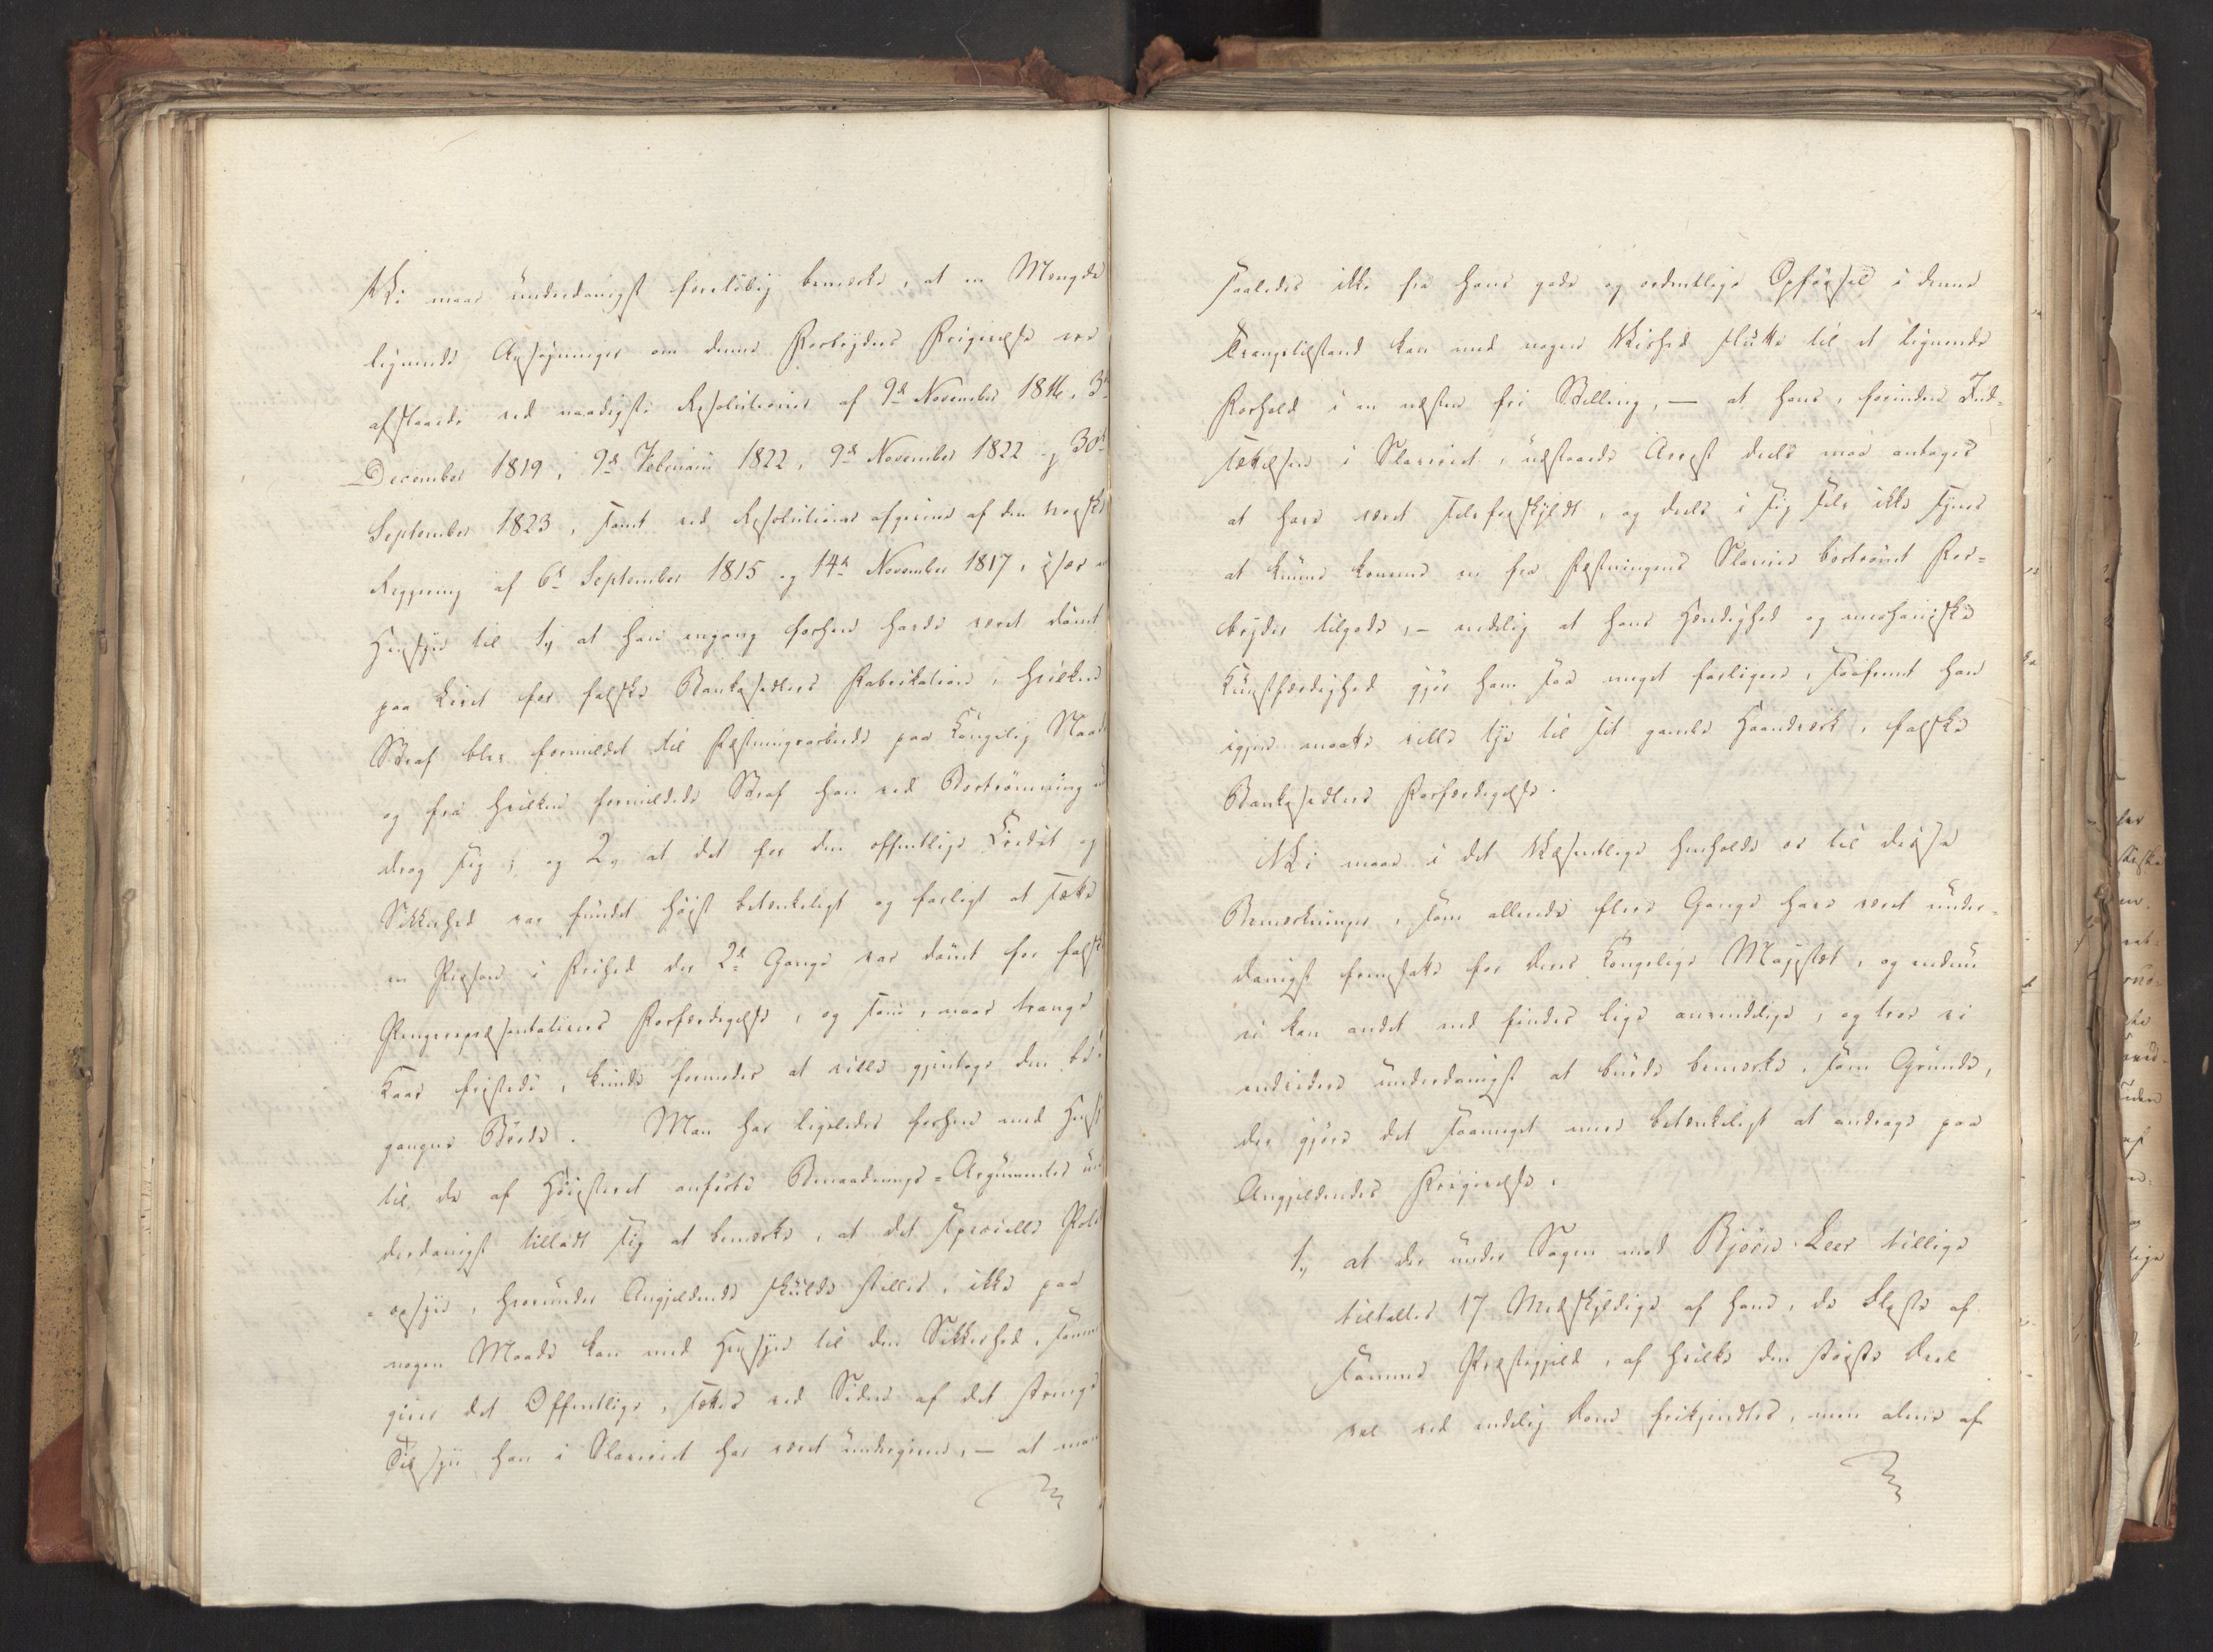 Vi maae underdanigst foreløbig bemærke, at en Mengde
lignende Ansøgninger om denne Forbryders Frigivelse ere
afslaaede ved naadigste Resolutioner af 9de November 1816, 3die
December 1819, 9de Februarii 1822, 9de November 1822 og 30te
September 1823, samt ved Resolutioner afgivne af den norske
Regjering af 6te September 1815 og 14de November 1817, især
Hensyn til 1, at han engang forhen havde været dømt
paa Livet for falske Bankosedlers Fabrikation, hvilken
Straf blev formildet til Fæstningsarbeide paa Kongelig Naade
og fra hvilken formildede Straf han ved Bortrømning und
drog sig; og 2, at det for den offentlige Credit og
Sikkerhed var fundet høist betænkeligt og farligt at sætte
en Person i Frihed der 2de Gange var dømt for falske
Pengerepræsentativers Forfærdigelse, og som, naar trange
Kaar fristede, kunde formodes at ville gjentage den be-
gangne Brøde. Man har ligeledes forhen med Hensyn
til de af Høiesteret anførte Benaadnings-Argumenter un
derdanigst tilladt sig at bemærke, at det specielle Poli
-opsyn, hvorunder Angjeldende skulde stilles, ikke paa
nogen Maade kan med Hensyn til den Sikkerhed, samme
giver det Offentlige, sættes ved Siden af det strenge
Tilsyn han i Slaveriet har været undergiven, — at man
saaledes ikke fra hans gode og ordentlige Opførsel i denne
Trangstilstand kan med nogen Vished slutte til et lignende
Forhold i en næsten fri Stilling, — at hans, forinden Ind-
sættelsen i Slaveriet, udstaaede Arrest deels maa antages
at have været selvforskyldt, og deels i sig selv ikke synes
at kunne komme en fra Fæstningens Slaverie bortrømt For-
bryder tilgode, — endelig at hans Hændighed og mechaniske
Kunstfærdighed gjør ham saa meget farligere, saafremt han
igjen maatte ville tye til sit gamle Haandværk, falske
Bankosedlers Forfærdigelse.
Vi maae i det Væsentlige henholde os til disse
Bemærkninger, som allerede flere Gange have været under-
danigst fremsatte for Deres Kongelige Majestæt, og endnu
vi kan andet end finder lige anvendelige, og troe vi
endvidere underdanigst at burde bemærke, som Grunde,
der gjøre det saameget mere betænkeligt at andrage paa
Angjeldendes Frigivelse,
1, at der under Sagen mod Bjørn Leer tillige
tiltaltes 17 Medskyldige af hans, de fleste af
samme Præstegjeld, af hvilke den største Deel
vel ved endelig Dom frikjendtes, men alene af